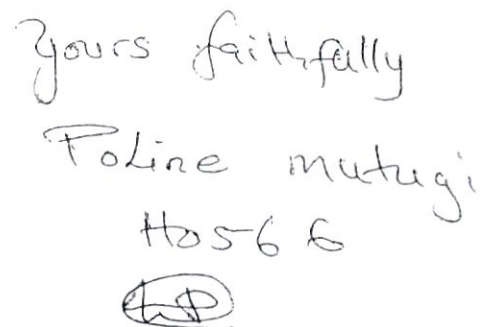 Yours faithfully
Poline mutugi
H0566